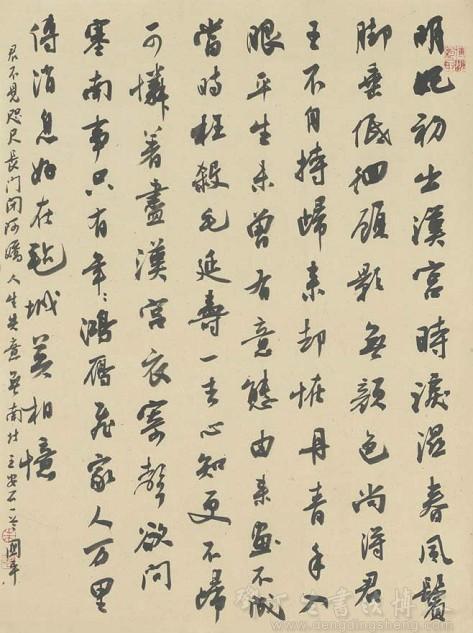 明妃初出漢宮時淚濕春風鬢
脚垂低徊顧影無顏色尚得君
王不自持歸来却恠丹青手入
眼平生未曾有意態由来畫不成
當時枉殺毛延壽一去心知更不歸
可憐著盡漢宮衣寄聲欲問
塞南事只有年々鴻雁飛家人万里
傳消息好在氈城莫相憶
君不見咫尺長门闭阿嬌人生失意無南北王安石一首
www.dengdingsheng.com